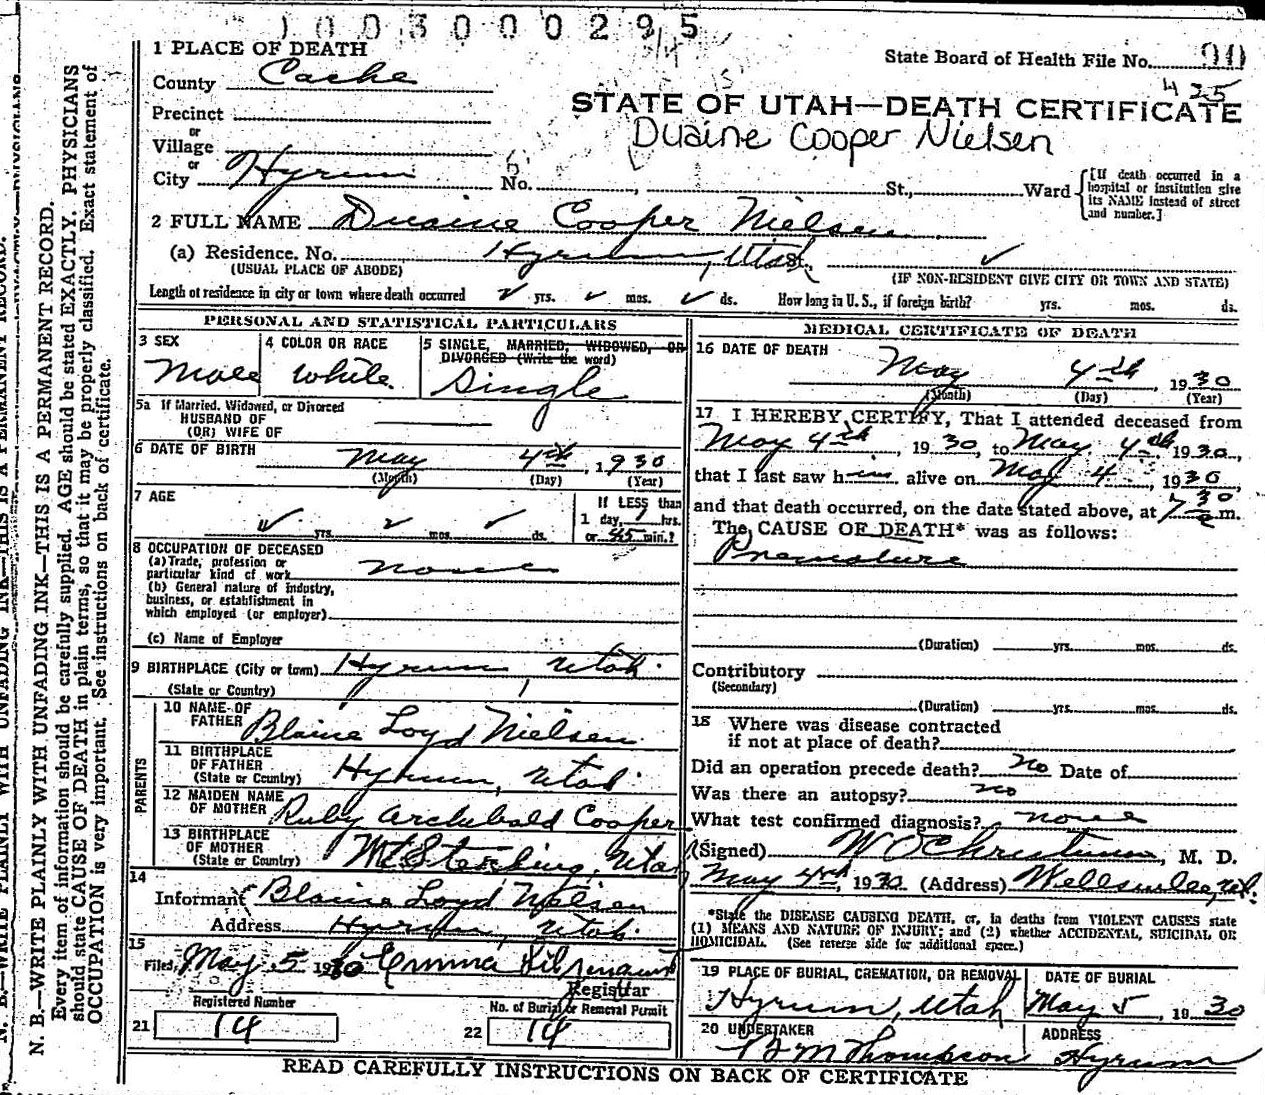 1003000295
State Board of Health File No. 90
425
1 PLACE OF DEATH
County Cache
STATE OF UTAH—DEATH CERTIFICATE
Precinct
Duaine Cooper Nielsen
or
Village
or
City Hyrum No. , St., Ward
[If death occurred in a hospital or institution give its NAME instead of street and number.]
2 FULL NAME Duaine Cooper Nielsen
(a) Residence. No. Hyrum, Utah St.,
(USUAL PLACE OF ABODE) (IF NON-RESIDENT GIVE CITY OR TOWN AND STATE)
Length of residence in city or town where death occurred ✓ yrs. ✓ mos. ✓ ds. How long in U. S., if foreign birth? yrs. mos. ds.
PERSONAL AND STATISTICAL PARTICULARS
3 SEX
Male
4 COLOR OR RACE
White
5 SINGLE, MARRIED, WIDOWED, OR DIVORCED (Write the word)
Single
5a If Married, Widowed, or Divorced
HUSBAND OF
(OR) WIFE OF
6 DATE OF BIRTH May 4th, 1930
(Month) (Day) (Year)
7 AGE
✓ yrs. ✓ mos. ✓ ds.
If LESS than
1 day, 1 hrs.
or 45 min.?
8 OCCUPATION OF DECEASED
(a) Trade, profession or
particular kind of work none
(b) General nature of industry,
business, or establishment in
which employed (or employer)
(c) Name of Employer
9 BIRTHPLACE (City or town) Hyrum, Utah.
(State or Country)
PARENTS
10 NAME OF
FATHER Blaine Loyd Nielsen.
11 BIRTHPLACE
OF FATHER Hyrum, Utah.
(State or Country)
12 MAIDEN NAME
OF MOTHER Ruby Archibald Cooper
13 BIRTHPLACE
OF MOTHER Mt Sterling, Utah
(State or Country)
14
Informant Blaine Loyd Nielsen
Address Hyrum, Utah.
15
Filed, May 5 1930 Emma
Registrar
Registered Number
21 14
No. of Burial or Removal Permit
22 14
MEDICAL CERTIFICATE OF DEATH
16 DATE OF DEATH May 4th, 1930
(Month) (Day) (Year)
17 I HEREBY CERTIFY, That I attended deceased from
May 4th, 1930, to May 4th 1930,
that I last saw him alive on May 4, 1930,
and that death occurred, on the date stated above, at 7:30 m.
The CAUSE OF DEATH* was as follows:
Premature
(Duration) yrs. mos. ds.
Contributory
(Secondary)
(Duration) yrs. mos. ds.
18 Where was disease contracted
if not at place of death?
Did an operation precede death? No Date of
Was there an autopsy? no
What test confirmed diagnosis? none
(Signed) W O Christensen, M. D.
May 4th, 1930 (Address) Wellsville, Ut.
*State the DISEASE CAUSING DEATH, or, in deaths from VIOLENT CAUSES state
(1) MEANS AND NATURE OF INJURY; and (2) whether ACCIDENTAL, SUICIDAL OR
HOMICIDAL. (See reverse side for additional space.)
19 PLACE OF BURIAL, CREMATION, OR REMOVAL
Hyrum, Utah
DATE OF BURIAL
May 5, 1930
20 UNDERTAKER
B M Thompson
ADDRESS
Hyrum
READ CAREFULLY INSTRUCTIONS ON BACK OF CERTIFICATE
N. B.—WRITE PLAINLY WITH UNFADING INK—THIS IS A PERMANENT RECORD.
Every item of information should be carefully supplied. AGE should be stated EXACTLY. PHYSICIANS
should state CAUSE OF DEATH in plain terms, so that it may be properly classified. Exact statement of
OCCUPATION is very important. See instructions on back of certificate.